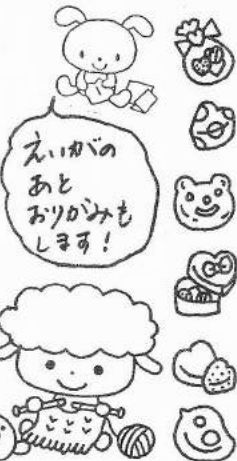 えいがの
あと
おりがみも
します!